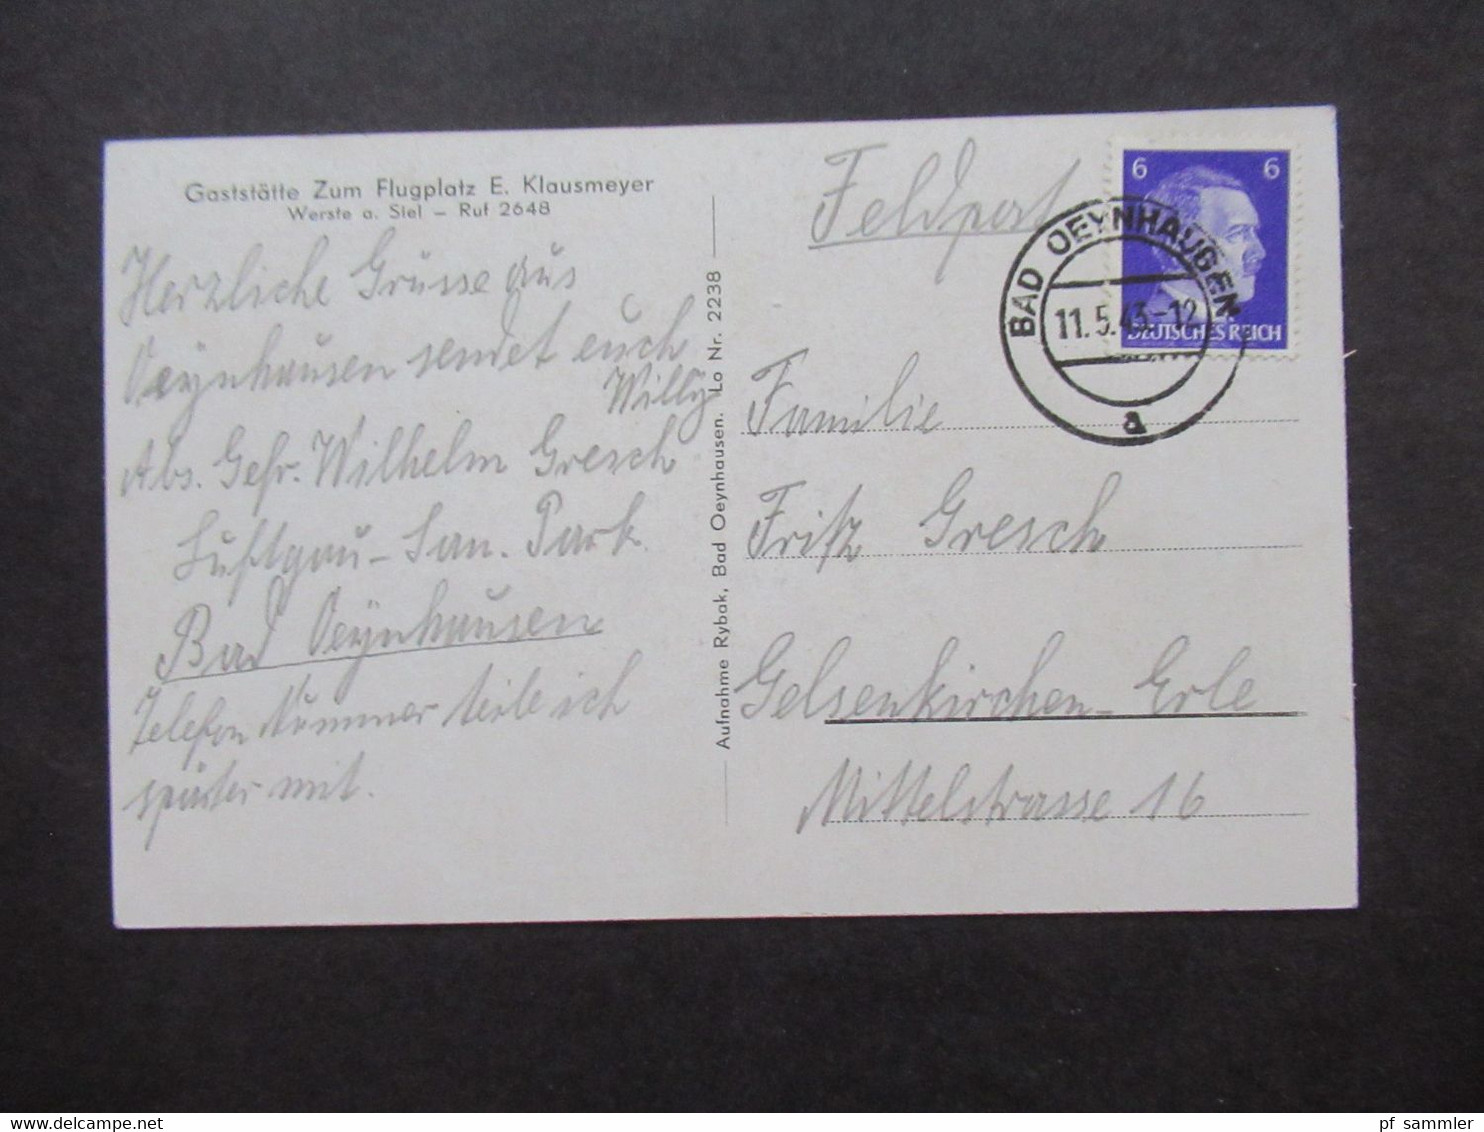 Gaststätte Zum Flugplatz E. Klausmeyer
Werste a. Siel – Ruf 2648
Herzliche Grüsse aus
Oeynhausen sendet euch
Willy
Abs. Gefr. Wilhelm Gresch
Luftgau-San. Park
Bad Oeynhausen
Telefon Nummer teile ich
später mit.
Aufnahme Rybak, Bad Oeynhausen. Lo Nr. 2238
Feldpost
6 6
DEUTSCHES REICH
BAD OEYNHAUSEN
11.5.43-12
a
Familie
Fritz Gresch
Gelsenkirchen-Erle
Mittelstrasse 16
www.delcampe.net
pf_sammler